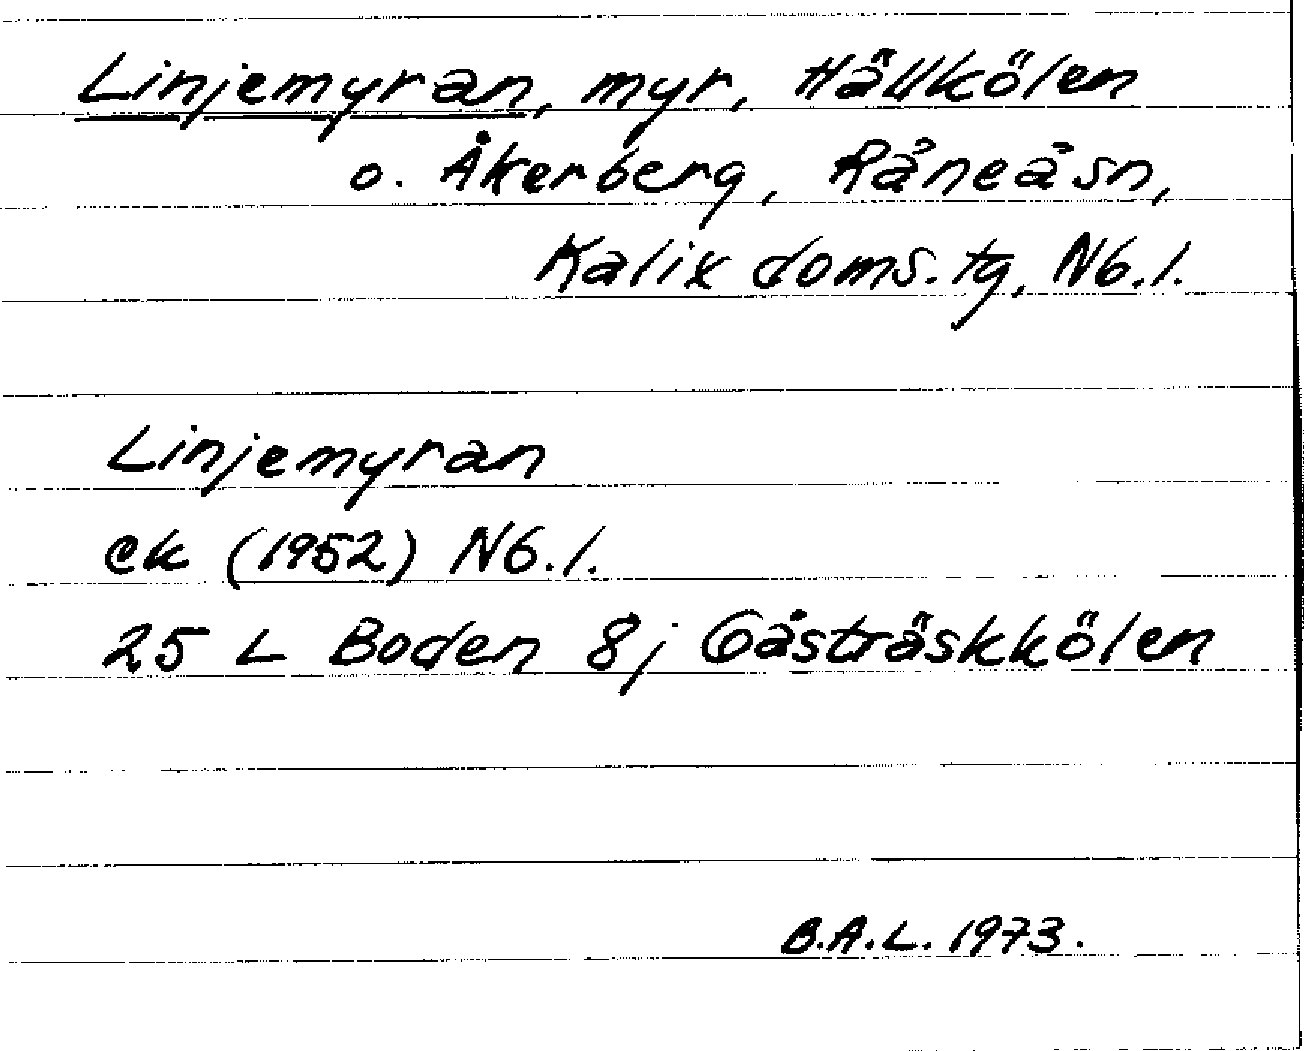 Linjemyran, myr, Hällkölen
o. Åkerberg, Råneåsn,
Kalix doms. tg, Nb. l.
Linjemyran
ek (1952) Nb. l.
25 L Boden 8j Gåsträskkölen
B.A.L. 1973.